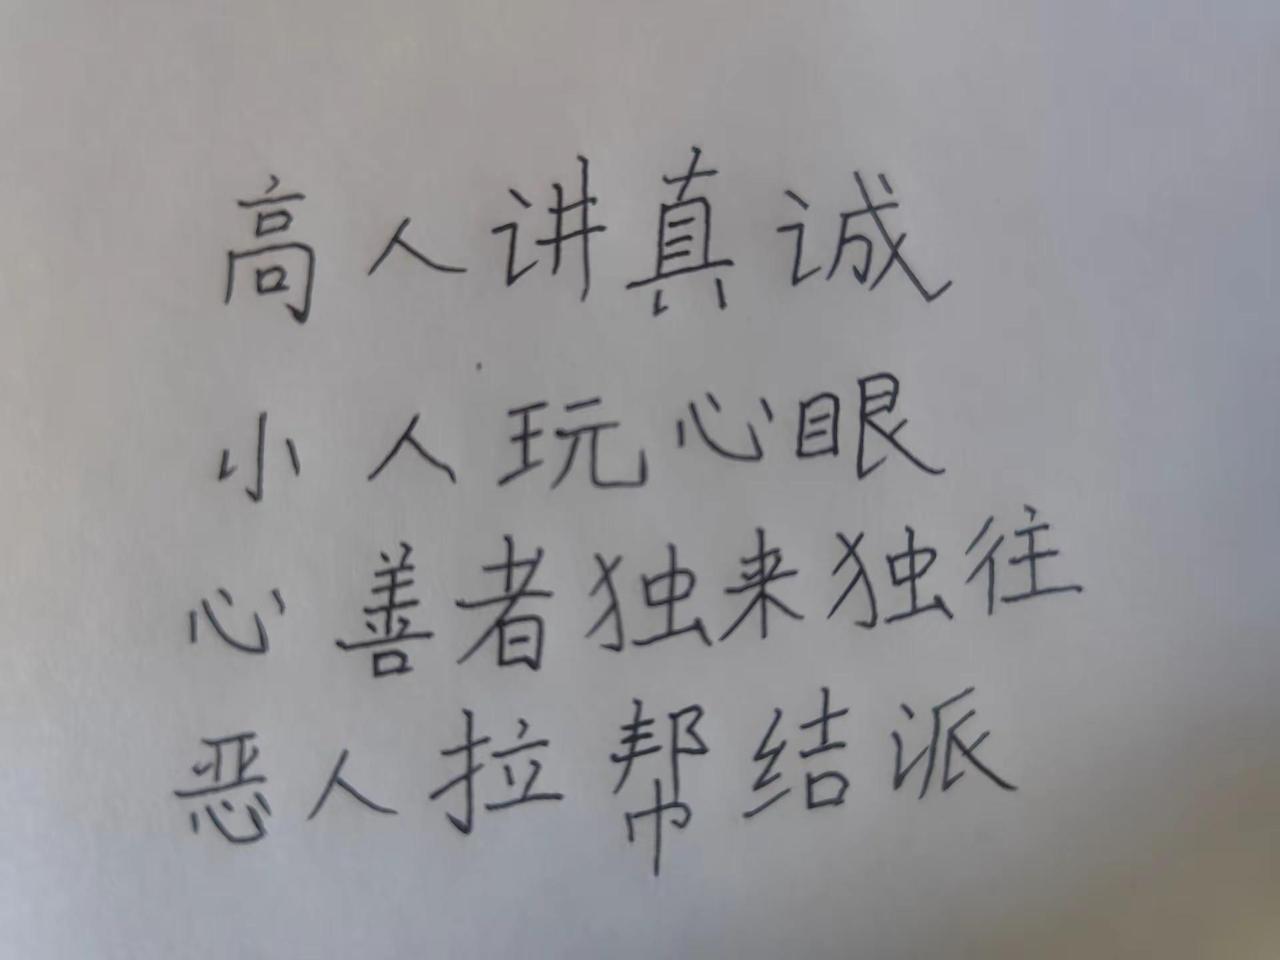 高人讲真诚
小人玩心眼
心善者独来独往
恶人拉帮结派